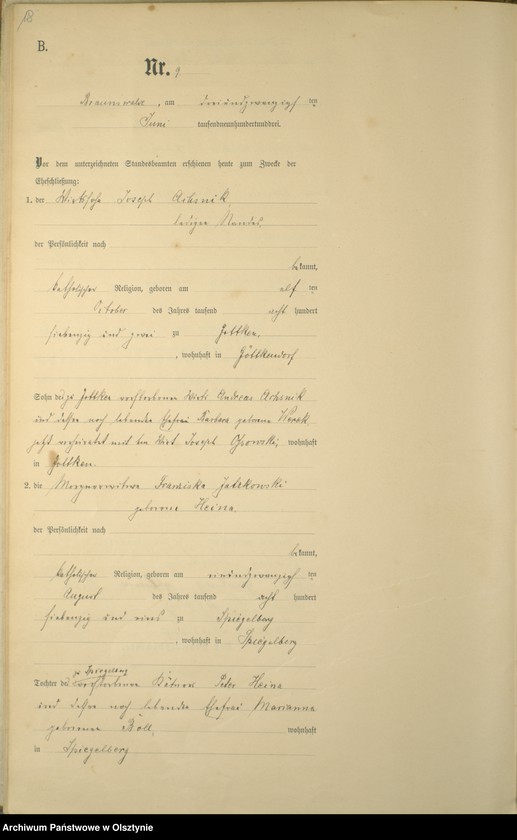 18
B.
Nr. 9
Braunswalde, am dreiundzwanzigsten
Juni tausendneunhundertunddrei.
Vor dem unterzeichneten Standesbeamten erschienen heute zum Zwecke der
Eheschließung:
1. der Wirtssohn Joseph
ledigen Standes,
der Persönlichkeit nach
bekannt,
katholischer Religion, geboren am elften
October des Jahres tausend acht hundert
siebenzig und zwei zu Jottken,
, wohnhaft in Göttkendorf
Sohn des zu Jottken verstorbenen Wirts Andreas
und dessen noch lebenden Ehefrau Barbara geborene
jetzt verheiratet mit dem Wirt Joseph wohnhaft
in Jottken.
2. die Franziska
geborene Heina.
der Persönlichkeit nach
bekannt,
katholischer Religion, geboren am einundzwanzigsten
August des Jahres tausend acht hundert
siebenzig und eines zu Spiegelberg
, wohnhaft in Spiegelberg
zu Spiegelberg
Tochter des verstorbenen Kätners Peter Heina
und dessen noch lebenden Ehefrau Marianna
geborenen wohnhaft
in Spiegelberg
Archiwum Państwowe w Olsztynie